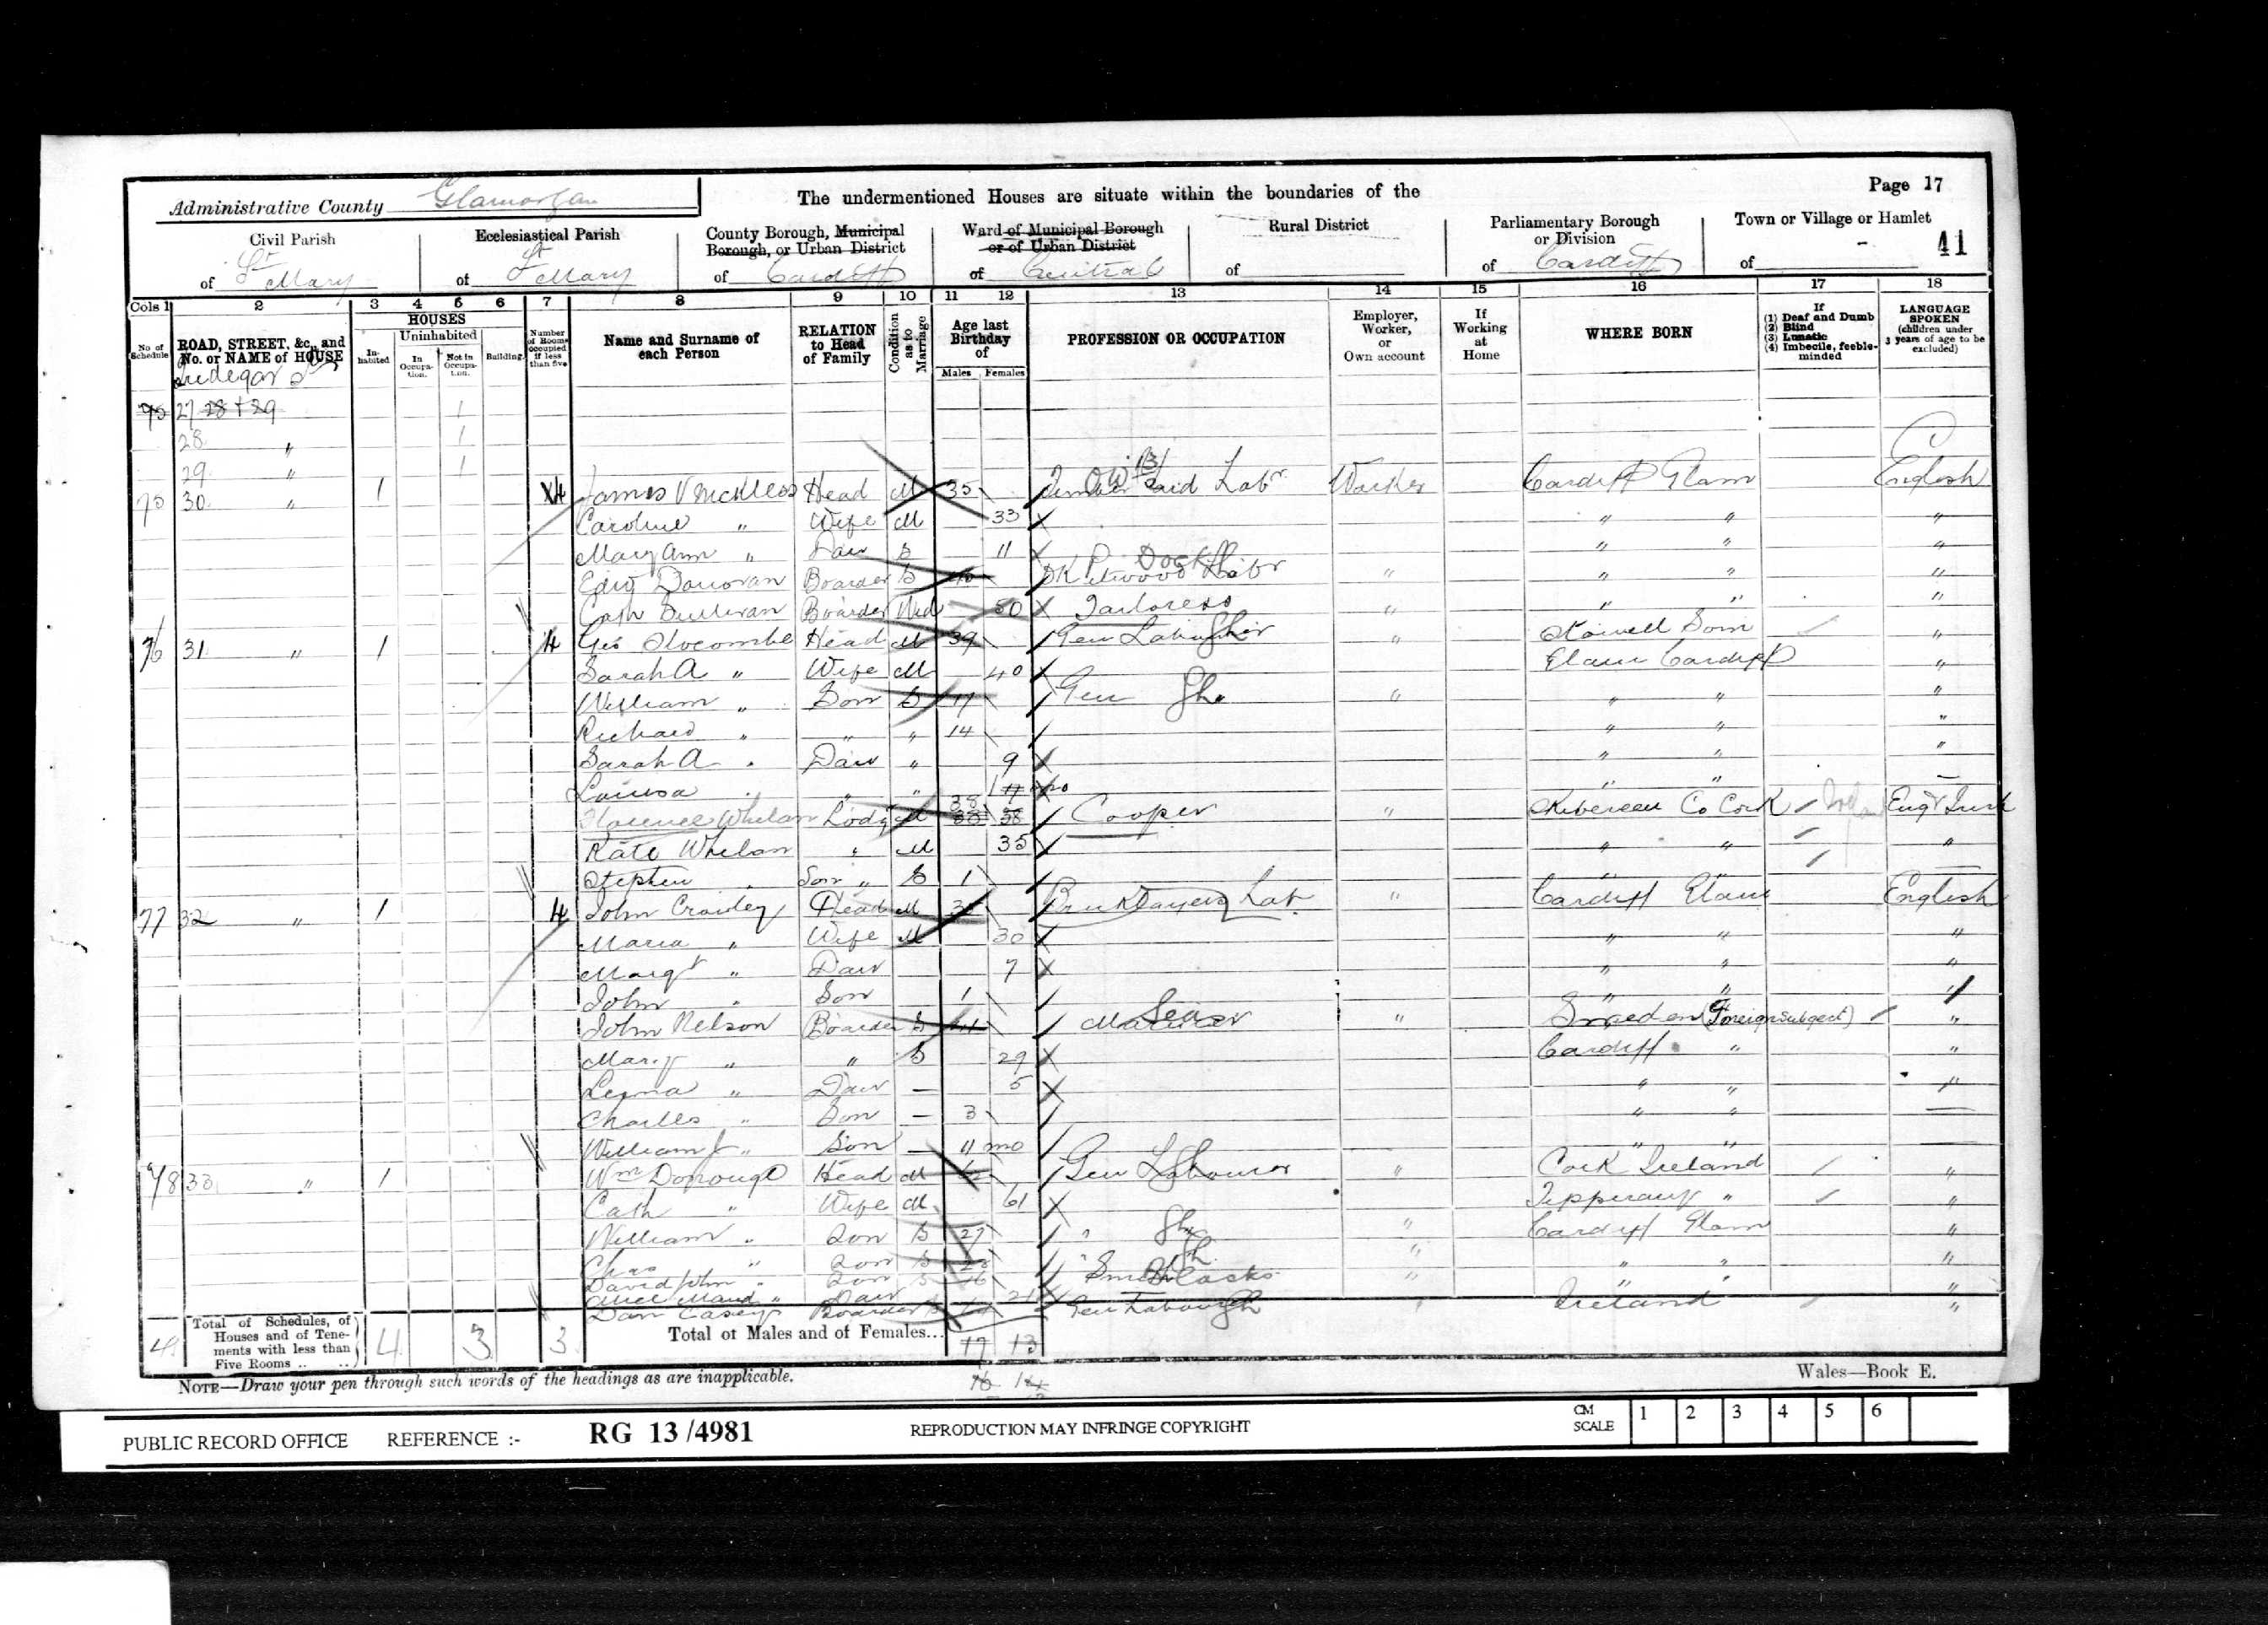 Administrative County Glamorgan
The undermentioned Houses are situate within the boundaries of the
Page 17
Civil Parish of St Mary
Ecclesiastical Parish of St Mary
County Borough, Municipal Borough, or Urban District of Cardiff
Ward of Municipal Borough or of Urban District of Central
Rural District of
Parliamentary Borough or Division of Cardiff
Town or Village or Hamlet of -
41
Cols 1 2 3 4 5 6 7 8 9 10 11 12 13 14 15 16 17 18
No. of Schedule
ROAD, STREET, &c., and No. or NAME of HOUSE
HOUSES
Inhabited
Uninhabited
In Occupation.
Not in Occupation.
Building
Number of Rooms occupied if less than five
Name and Surname of each Person
RELATION to Head of Family
Condition as to Marriage
Age last Birthday of
Males Females
PROFESSION OR OCCUPATION
Employer, Worker, or Own account
If Working at Home
WHERE BORN
If (1) Deaf and Dumb (2) Blind (3) Lunatic (4) Imbecile, feeble-minded
LANGUAGE SPOKEN (children under 3 years of age to be excluded)
Tredegar St
75 27 28 + 29 1
28 " 1
29 " 1
75 30 " 1 4 James Head M 35 Timber Labr Worker Cardiff Glam English
Caroline " Wife M 33 X " " "
Mary Ann " Daur S 11 X " " "
Edw Donovan Boarder S 40 Dock Labr " " " "
Cath Sullivan Boarder Wid X Tailoress " " " "
76 31 " 1 4 Geo Slocombe Head M 39 Gen Labr " Stawell Som "
Sarah A " Wife M 40 X Glam Cardiff "
William " Son S 17 Gen " " " "
Richard " " " 14 " " "
Sarah A " Daur " 9 X " " "
Louisa " " " " " -
Florence Whelan Lodgr M 38 Cooper " Skibereen Co Cork Eng & Irish
Kate Whelan " M 35 X " " "
Stephen " Son " S 1 " " -
77 32 " 1 4 John Crowley Head M Bricklayers Lab " Cardiff Glam English
Maria " Wife M 30 X " " "
Margt " Daur 7 X " " "
John " Son 1 " "
John Nelson Boarder S Mariner Sea " Sweden (Foreign subject) "
Mary " " S 29 X Cardiff " "
" Daur - 5 X " " "
Charles " Son - 3 " " -
William J " Son - 11 mo " "
78 33 " 1 Wm Head M Gen Labourer " Cork Ireland "
Cath " Wife M 61 X Tipperary " "
William " Son S 27 " " Cardiff Glam "
Chas " Son S " " " " "
David John " Son S 16 Smith " " "
Alice Maud " Daur 21 X "
Dan Casey Boarder S Gen Labourer Ireland "
4 Total of Schedules, of Houses and of Tenements with less than Five Rooms .. .. 4 3 3
Total of Males and of Females... 17 13
16 14
NOTE—Draw your pen through such words of the headings as are inapplicable.
Wales—Book E.
PUBLIC RECORD OFFICE REFERENCE :- RG 13 /4981 REPRODUCTION MAY INFRINGE COPYRIGHT
CM SCALE 1 2 3 4 5 6